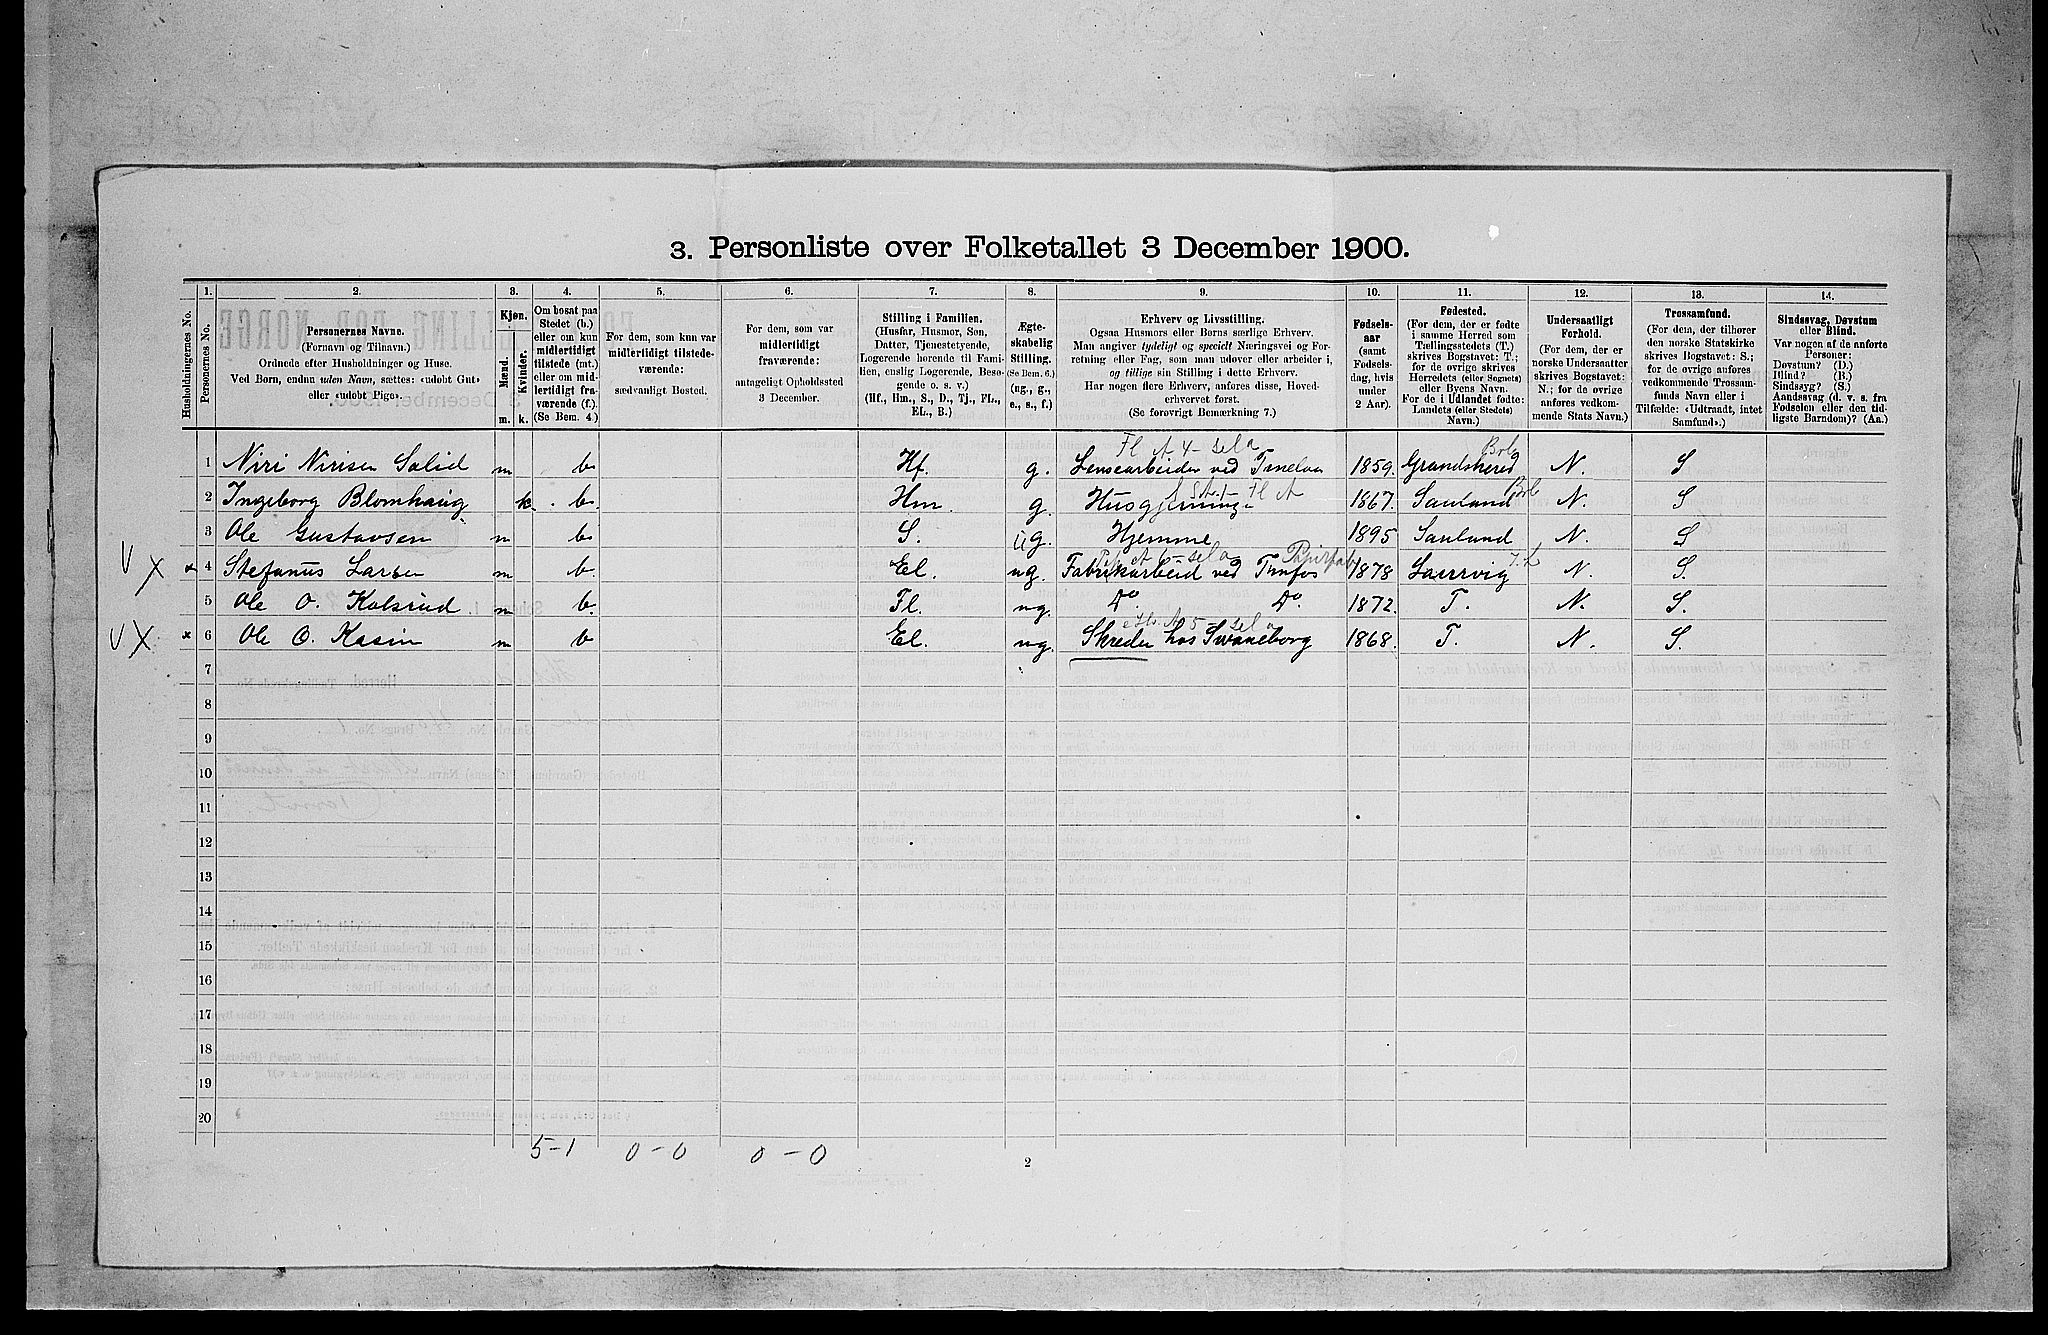 3. Personliste over Folketallet 3 December 1900.
1. 2. 3. 4. 5. 6. 7. 8. 9. 10. 11. 12. 13. 14.
Husholdningernes No.
Personernes No.
Personernes Navne.
(Fornavn og Tilnavn.)
Ordnede efter Husholdninger og Huse.
Ved Børn, endnu uden Navn, sættes: «udøbt Gut»
eller «udøbt Pige».
Kjøn.
Mænd.
Kvinder.
m. k.
Om bosat paa
Stedet (b.)
eller om kun
midlertidigt
tilstede (mt.)
eller om mid-
lertidigt fra-
værende (f.)
(Se Bem. 4.)
For dem, som kun var
midlertidigt tilstede-
værende:
sædvanligt Bosted.
For dem, som var
midlertidigt
fraværende:
antageligt Opholdssted
3 December.
Stilling i Familien.
(Husfar, Husmor, Søn,
Datter, Tjenestetyende,
Logerende hørende til Fami-
lien, enslig Logerende, Besø-
gende o. s. v.)
(Hf., Hm., S., D., Tj., FL.,
EL., B.)
Ægte-
skabelig
Stilling.
(Se Bem. 6.)
(ug., g.,
e., s., f.)
Erhverv og Livsstilling.
Ogsaa Husmors eller Børns særlige Erhverv.
Man angiver tydeligt og specielt Næringsvei og For-
retning eller Fag, som man udøver eller arbeider i,
og tillige sin Stilling i dette Erhverv.
Har nogen flere Erhverv, anføres disse, Hoved-
erhvervet først.
(Se forøvrigt Bemærkning 7.)
Fødsels-
aar
(samt
Fødsels-
dag, hvis
under
2 Aar).
Fødested.
(For dem, der er fødte
i samme Herred som
Tællingsstedets (T.)
skrives Bogstavet: T.;
for de øvrige skrives
Herredets (eller Sognets)
eller Byens Navn.
For de i Udlandet fødte:
Landets (eller Stedets)
Navn.)
Undersaatligt
Forhold.
(For dem, der er
norske Undersaatter
skrives Bogstavet:
N.; for de øvrige
anføres vedkom-
mende Stats Navn.)
Trossamfund.
(For dem, der tilhører
den norske Statskirke
skrives Bogstavet: S.;
for de øvrige anføres
vedkommende Trossam-
funds Navn eller i
Tilfælde: «Udtraadt, intet
Samfund».)
Sindssvag, Døvstum
eller Blind.
Var nogen af de anførte
Personer:
Døvstum? (D.)
Blind? (B.)
Sindssyg? (S.)
Aandssvag (d. v. s. fra
Fødselen eller den tid-
ligste Barndom)? (Aa.)
1 Niri Nirisen Solid m b Hf. g. Lensearbeider ved 1859. Grandshered N. S
2 Ingeborg Blomhaug k. b. Hm. g. Husgjerning 1867. Sauland N. S
3 Ole Gustavsen m b S. ug. Hjemme 1895 Sauland N. S
V X x 4 Stefanus Larsen m b. El. ug. Fabrikarbeid ved Tinfos 1878 Laurvig N. S.
5 Ole O. Kolsrud m b. Fl. ug. Do Do. 1872. T. N. S.
V X x 6 Ole O. Kasin m b El. ug. Skredder hos Swaneborg 1868. T. N. S.
7
8
9
10
11
12
13
14
15
16
17
18
19
20
5-1 0-0 0-0
2